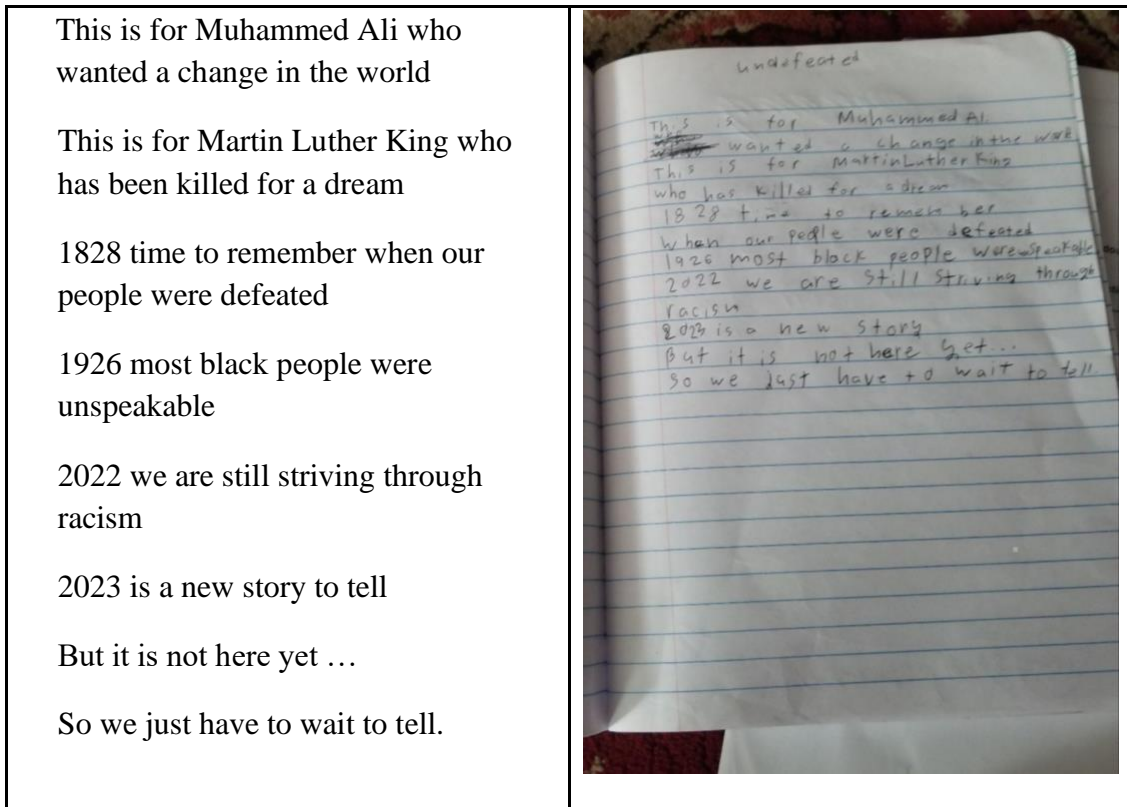 This is for Muhammed Ali who
wanted a change in the world
This is for Martin Luther King who
has been killed for a dream
1828 time to remember when our
people were defeated
1926 most black people were
unspeakable
2022 we are still striving through
racism
2023 is a new story to tell
But it is not here yet …
So we just have to wait to tell.
undefeated
This is for Muhammed Ali
wanted a change in the
This is for Martin Luther King
who has killed for a dream
1828 time to remember
When our people were defeated
1926 most black people were
2022 we are still striving through
racism
2023 is a new story
But it is not here yet...
so we just have to wait to tell